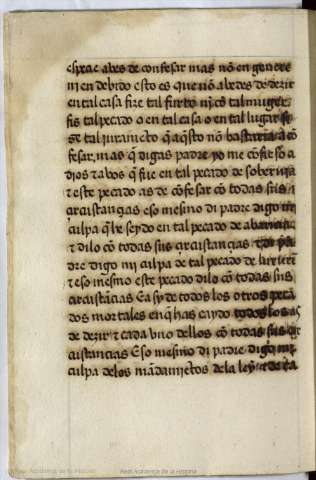 espeçie abes de confesar mas nõ en genere
ni en debido esto es que nõ abedes de dezir
en tal casa fize tal furto nj cõ tal muger
fis tal pecado o en tal casa o en tal lugar
tal juramẽto q̃ aq̃sto nõ bastaria a cõ
fesar, mas q̃ digas padre yo me cõfieso a
dios τ a bos q̃ fue en tal pecado de soberuia
τ este pecado as de cõfesar cõ todas sus
çircustançias eso mesmo di padre digo mi
culpa q̃ he seydo en tal pecado de abariçia
τ dilo cõ todas sus çircustançias τ di pa
dre digo mi culpa de tal pecado de luxuria
τ eso mesmo este pecado dilo cõ todas sus
çircustãçias E asy de todos los otros peca
dos mortales en q̃ has caydo todos los as
de dezir τ cada vno dellos cõ todas sus çir
custançias Eso mesmo di padre digo mi
culpa delos mãdamiẽtos dela ley
Real Academia de la Historia